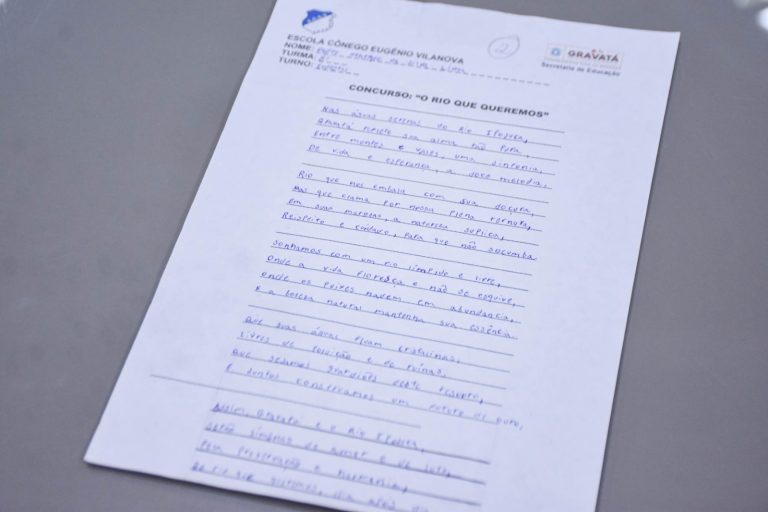 ESCOLA CÔNEGO EUGÊNIO VILANOVA
NOME:
TURMA:
TURNO:
2
GRAVATÁ
Secretaria de Educação
CONCURSO: "O RIO QUE QUEREMOS"
Nas águas serenas do Rio Ipojuca,
Gravatá reflete sua alma não pura,
Entre montes e vales, uma sintonia,
De vida e esperança, a doce melodia.
Rio que nos embala com sua doçura,
Mas que clama por nossa plena ternura,
Em suas margens, a natureza suplica,
Respeito e cuidado, para que não sucumba
Sonhamos com um rio límpido e livre,
Onde a vida floresça e não se esquive,
Onde os peixes nadem em abundância,
E a beleza natural mantenha sua essência.
Que suas águas fluam cristalinas,
Livres de poluição e de ruínas,
Que sejamos guardiões deste tesouro,
E juntos construamos um futuro de ouro,
Assim, Gravatá e o Rio Ipojuca,
Serão símbolos de amor e de luta,
Pela preservação e harmonia,